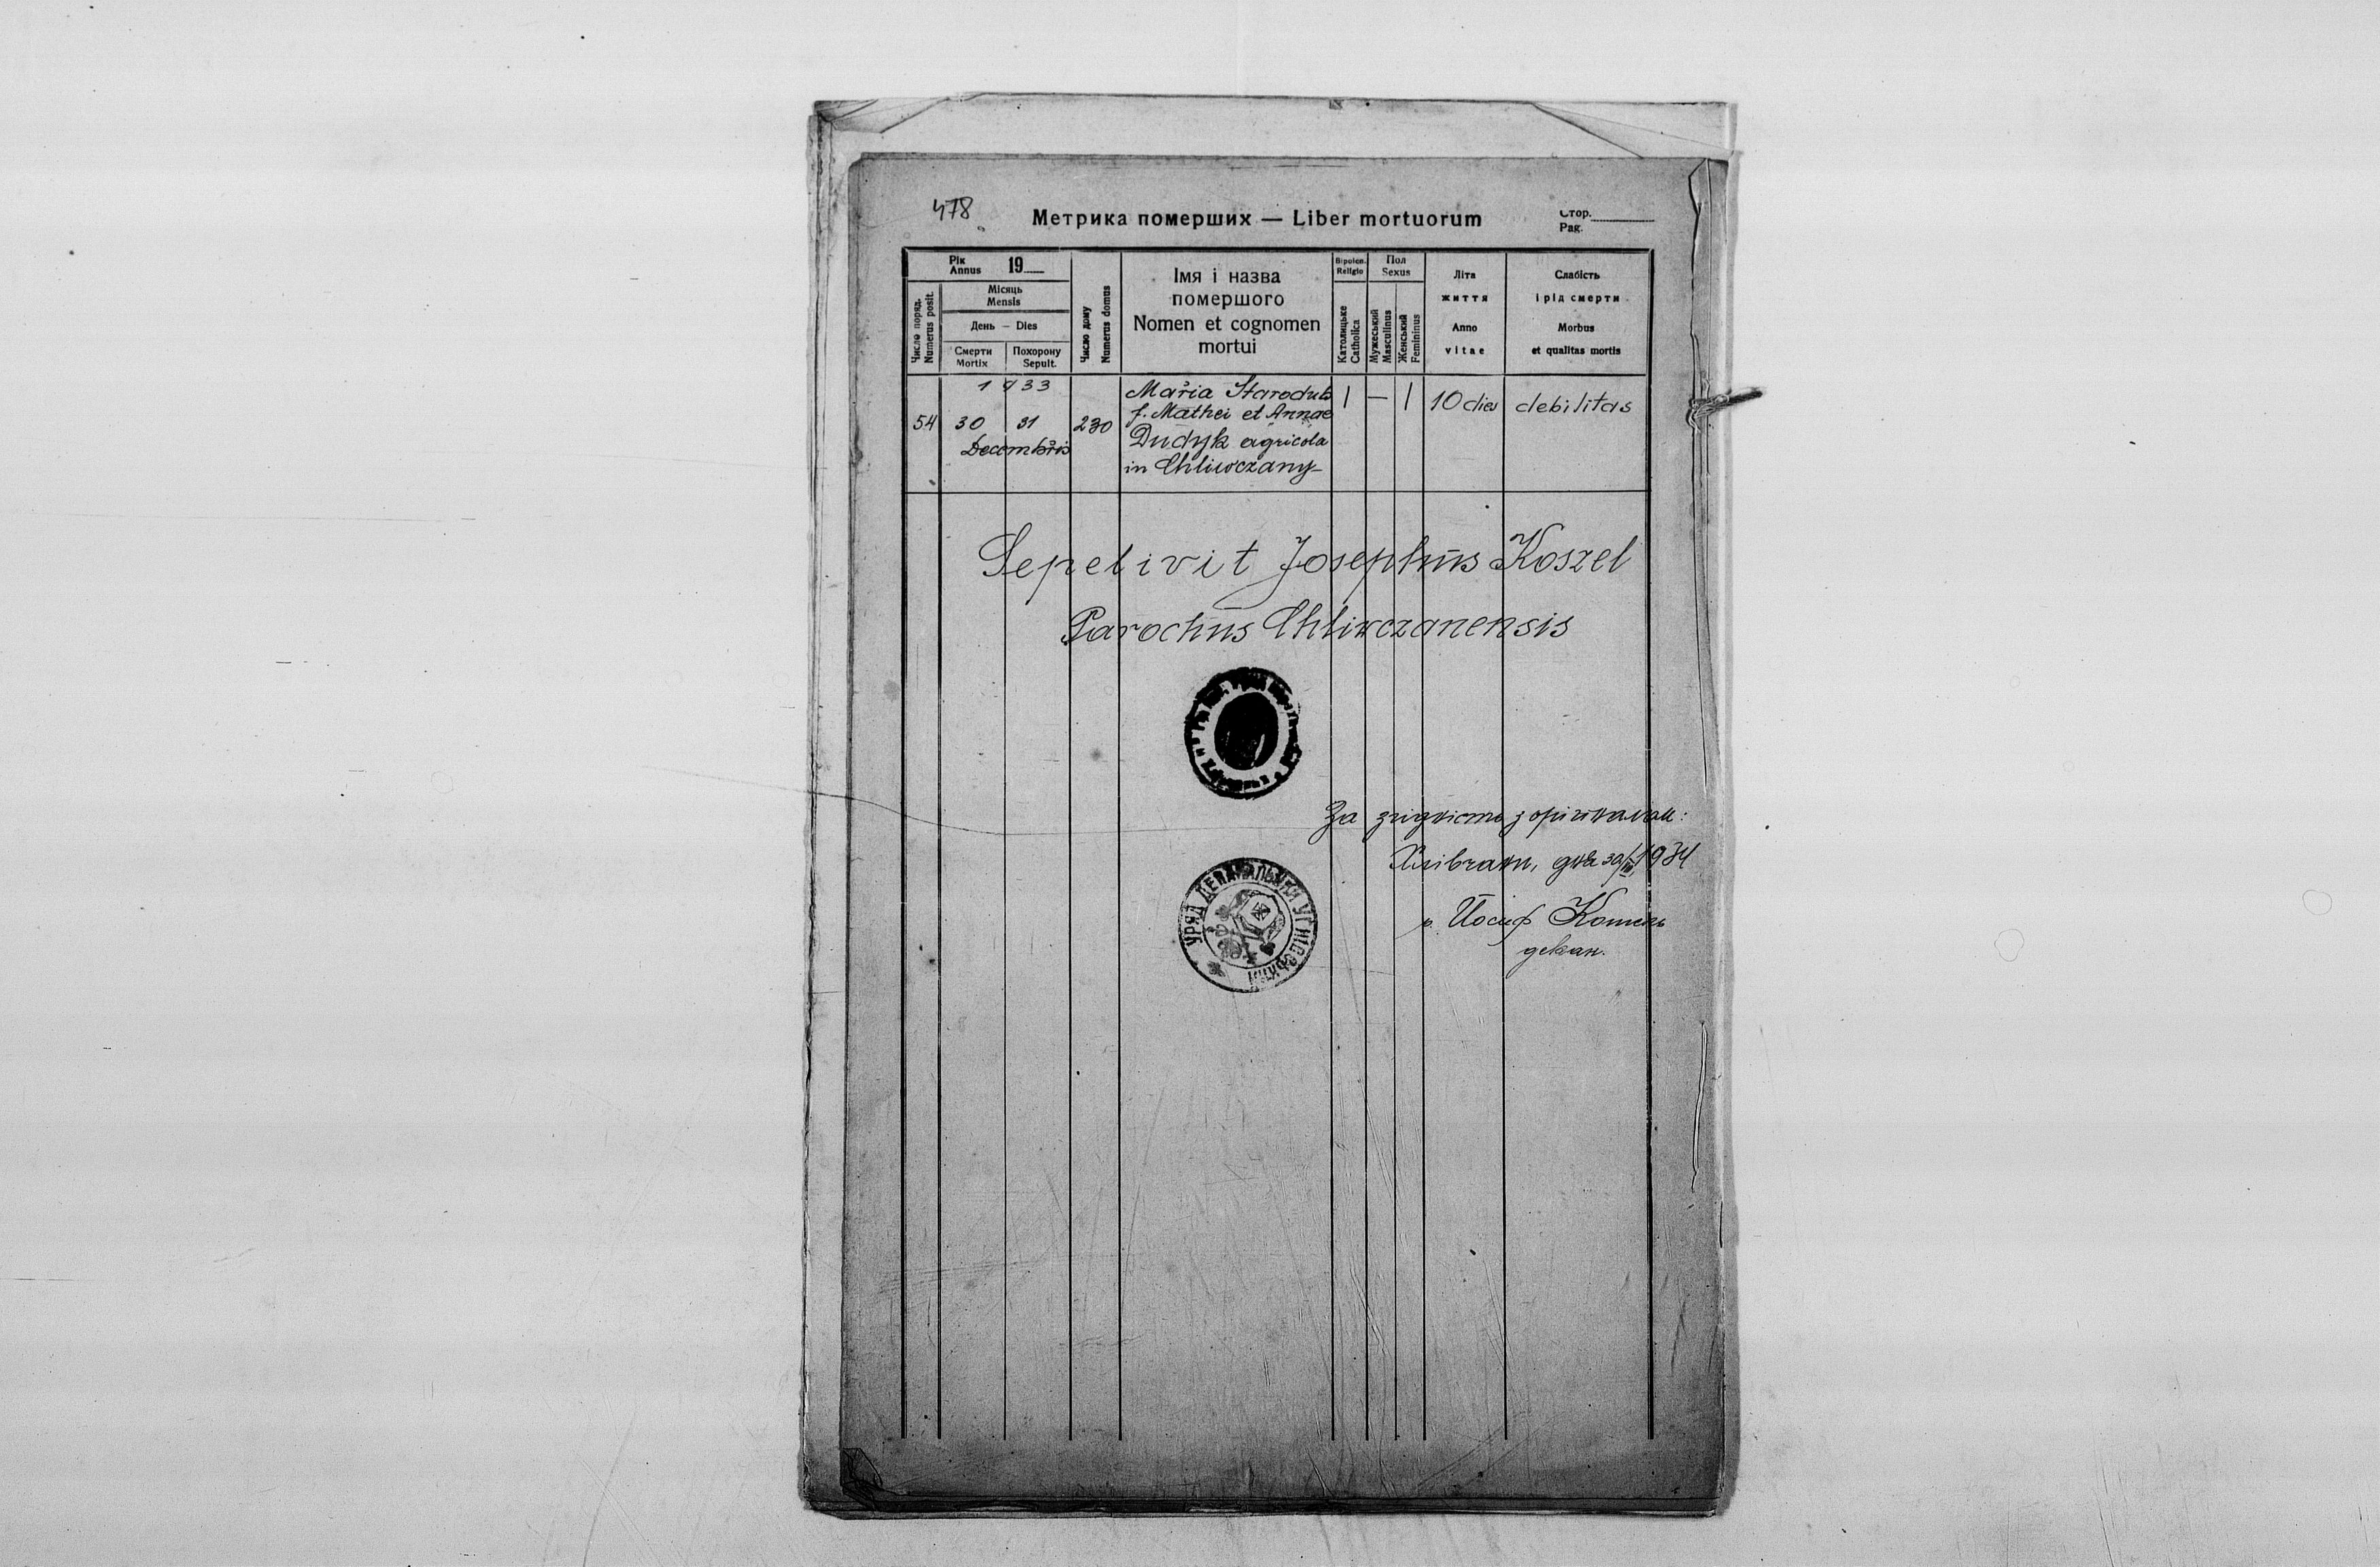 478
Метрика померших — Liber mortuorum
Стор.
Pag.
Рік
Annus 19
Місяць
Mensis
День — Dies
Число поряд.
Numerus posit.
Смерти
Mortix
Похорону
Sepult.
Число дому
Numerus domus
Імя і назва
помершого
Nomen et cognomen
mortui
Віроіспов.
Religio
Католицьке
Catholica
Пол
Sexus
Мужеський
Masculinus
Женський
Femininus
Літа
життя
Anno
vitae
Слабість
і рід смерти
Morbus
et qualitas mortis
1933
54 30 31 230
Decembris
Maria Starodub
f. Mathei et Annae
Dudyk agricola
in Chliwczany
1 — 1 10 dies debilitas
Sepelivit Josephus Koszel
Parochus Chliwczanensis
За згідність з оригіналом:
Хлівчани, дня 30/III 1934
о. Йосиф Кошель
декан.
УРЯД ДЕКАНАЛЬНИЙ УГНІВСЬКИЙ